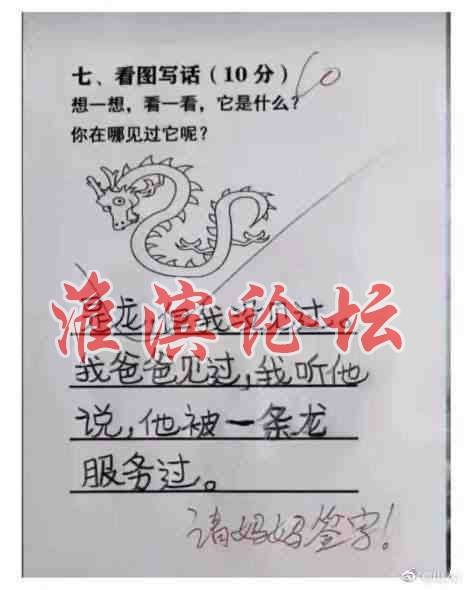 七、看图写话（10分）
想一想，看一看，它是什么？
你在哪见过它呢？
是龙，但我没见过。
淮滨论坛
我爸爸见过，我听他
说，他被一条龙
服务过。
请妈妈签字！